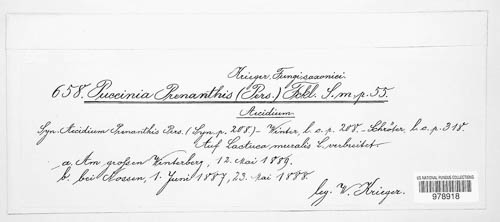 Krieger, Fungi saxonici.
658. Puccinia Prenanthis (Pers.) Fckl. S. m. p. 55.
Aecidium.
Syn. Aecidium Prenanthis Pers. (Syn. p. 208) – Winter, l. c. p. 208. – Schröter, l. c. p. 318.
Auf Lactuca muralis L. verbreitet.
a. Am großen Winterberg, 12. Mai 1889.
b. bei Nossen, 1. Juni 1887, 23. Mai 1888.
leg. W. Krieger.
US NATIONAL FUNGUS COLLECTIONS
978918